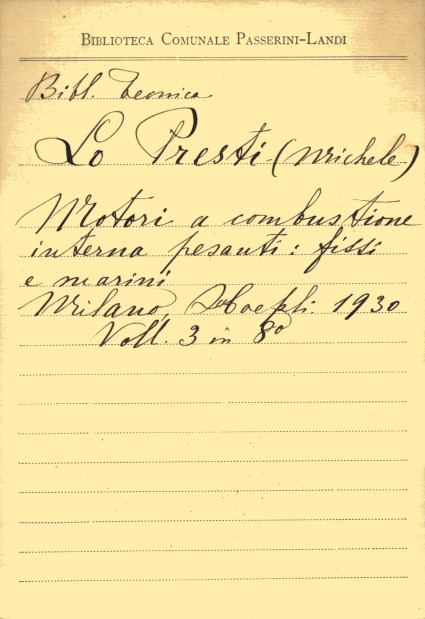 BIBLIOTECA COMUNALE PASSERINI-LANDI
Bibl. Tecnica
Lo Presti (Michele)
Motori a combustione
interna pesanti: fissi
e marini
Milano, Hoepli. 1930
Voll. 3 in 8º